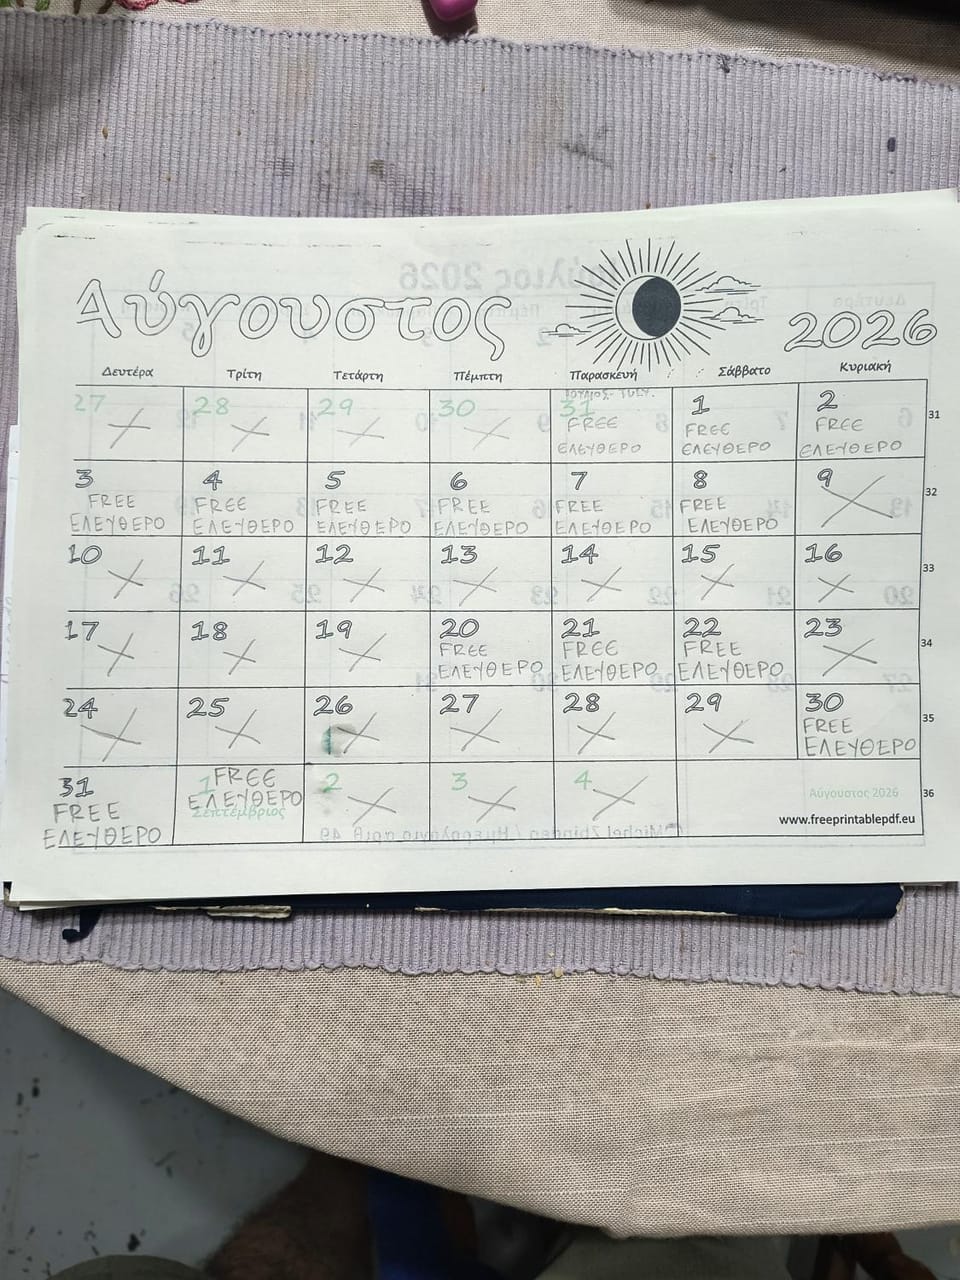 Αύγουστος 2026
Δευτέρα Τρίτη Τετάρτη Πέμπτη Παρασκευή Σάββατο Κυριακή
27 28 29 30 31 1 2 31
FREE FREE FREE
ΕΛΕΥΘΕΡΟ ΕΛΕΥΘΕΡΟ ΕΛΕΥΘΕΡΟ
3 4 5 6 7 8 9 32
FREE FREE FREE FREE FREE FREE
ΕΛΕΥΘΕΡΟ ΕΛΕΥΘΕΡΟ ΕΛΕΥΘΕΡΟ ΕΛΕΥΘΕΡΟ ΕΛΕΥΘΕΡΟ ΕΛΕΥΘΕΡΟ
10 11 12 13 14 15 16 33
17 18 19 20 21 22 23 34
FREE FREE FREE
ΕΛΕΥΘΕΡΟ ΕΛΕΥΘΕΡΟ ΕΛΕΥΘΕΡΟ
24 25 26 27 28 29 30 35
FREE
ΕΛΕΥΘΕΡΟ
31 1 2 3 4 36
FREE FREE
ΕΛΕΥΘΕΡΟ ΕΛΕΥΘΕΡΟ
Σεπτέμβριος
Αύγουστος 2026
www.freeprintablepdf.eu